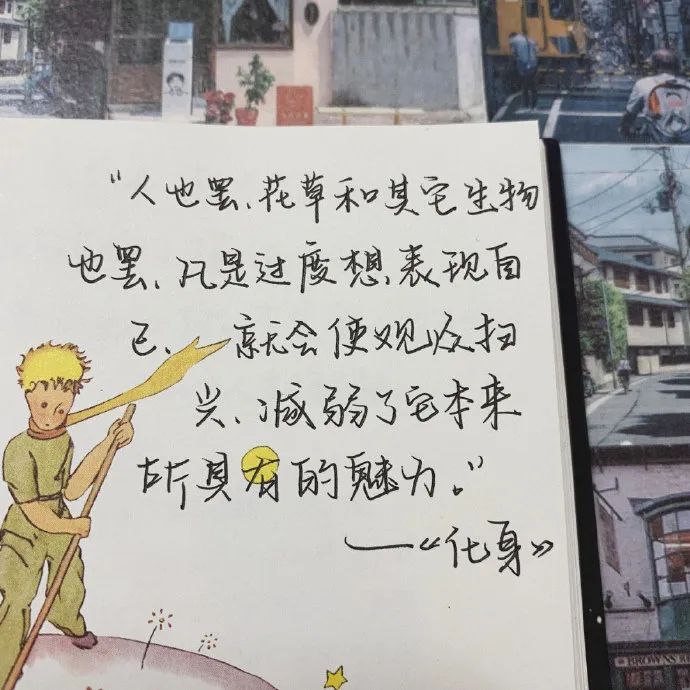 “人也罢、花草和其它生物
也罢、凡是过度想表现自
己、就会使观众扫
兴、减弱了它本来
所具有的魅力。”
——《化身》
BROWNS